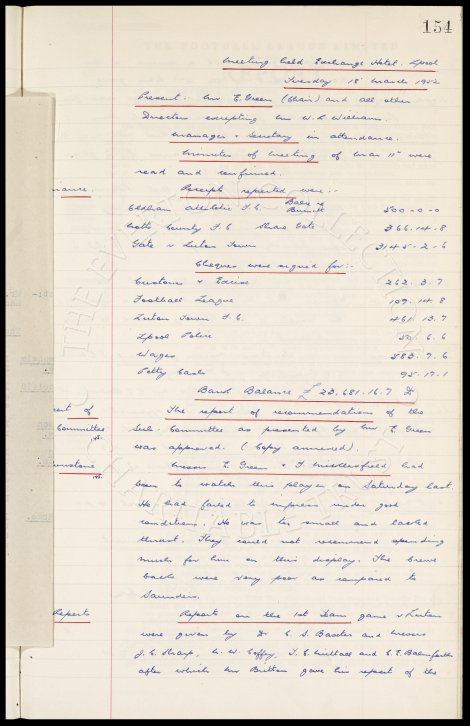 154
Meeting held Exchange Hotel. Lpool
Tuesday 18th March 1952
Present: Mr E. Green (Chair) and all other
Directors excepting Mr W. R. Williams.
Manager & Secretary in attendance.
Minutes of Meeting of Mar 11th were
read and confirmed.
Receipts reported were:-
Oldham Athletic F.C. Burnett 500-0-0
Notts County F.C. Share Gate 366.14.8
Gate v Luton Town 3145-2-6
Cheques were signed for:-
Customs & Excise 262.3.7
Football League 109.14.8
Luton Town F.C. 461.13.7
Lpool Police 50.6.6
Wages 583.7.6
Petty Cash 95.17.1
Bank Balance £ 23,681.16.7 Dr
The report of recommendations of the
Sub. Committee as presented by Mr E. Green
was approved. (Copy annexed).
Messrs E. Green & F. Micklesfield had
been to watch this player on Saturday last.
He had failed to impress under good
conditions. He was too small and lacked
thrust. They could not recommend spending
much for him on this display. The Crewe
backs were very poor as compared to
Saunders.
Reports on the 1st Team game v Luton
were given by Dr C. S. Baxter and Messrs
J. C. Sharp, W. C. Cuff, T. C. Nuttall and C. E. Balmforth
after which Mr Britton gave his report of the
nance.
ort of
Committee
unstone
Reports